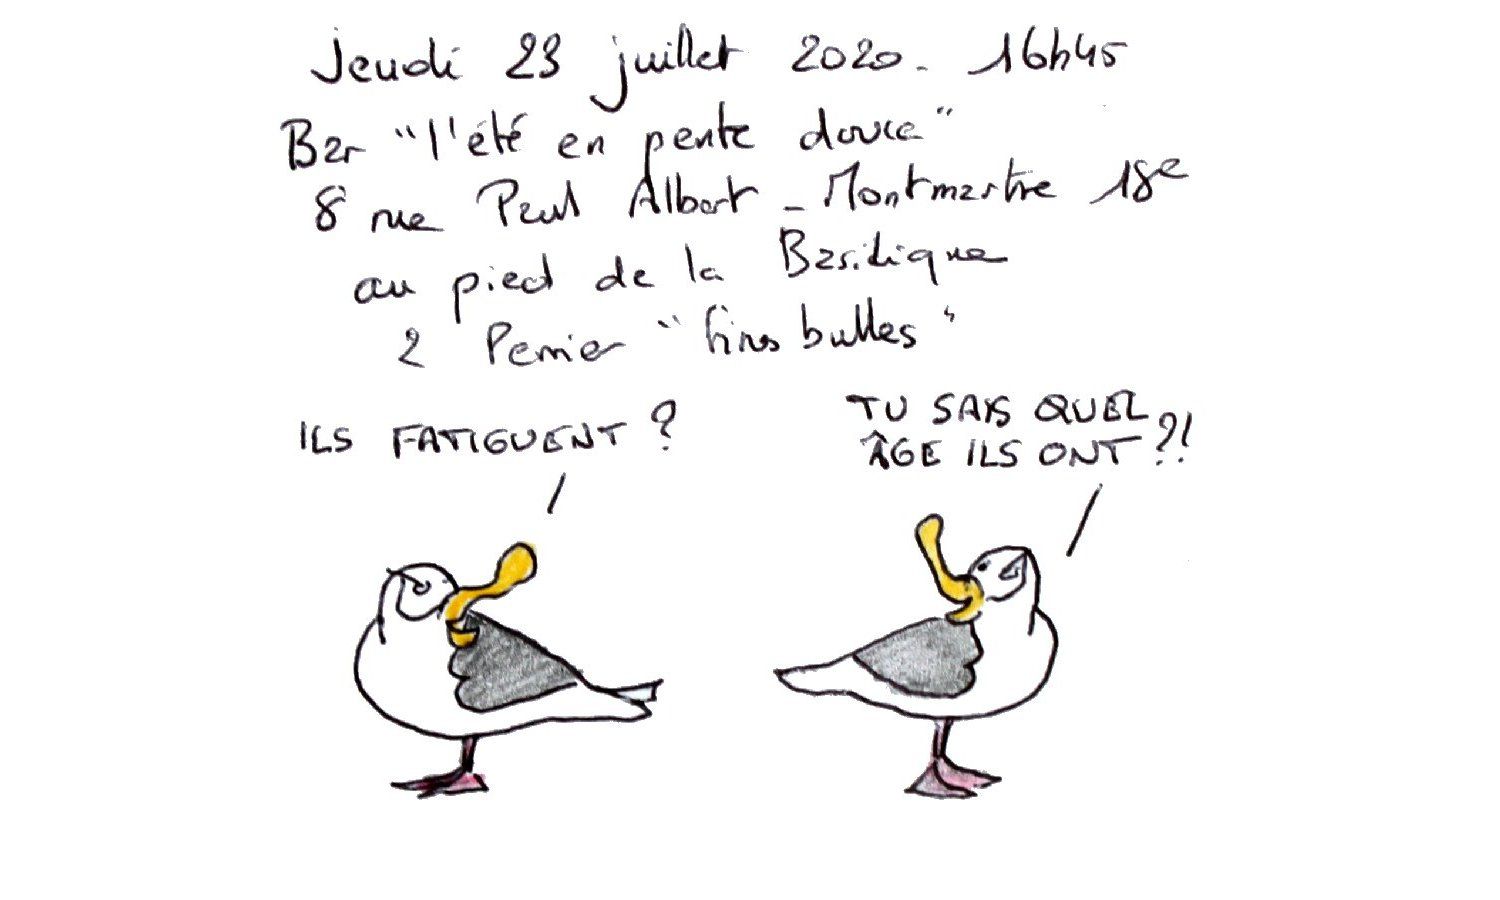 Jeudi 23 juillet 2020. 16h45
Bar "l'été en pente douce"
8 rue Paul Albert - Montmartre 18e
au pied de la Basilique
2 Perrier "fines bulles"
ILS FATIGUENT ?
TU SAIS QUEL
ÂGE ILS ONT ?!